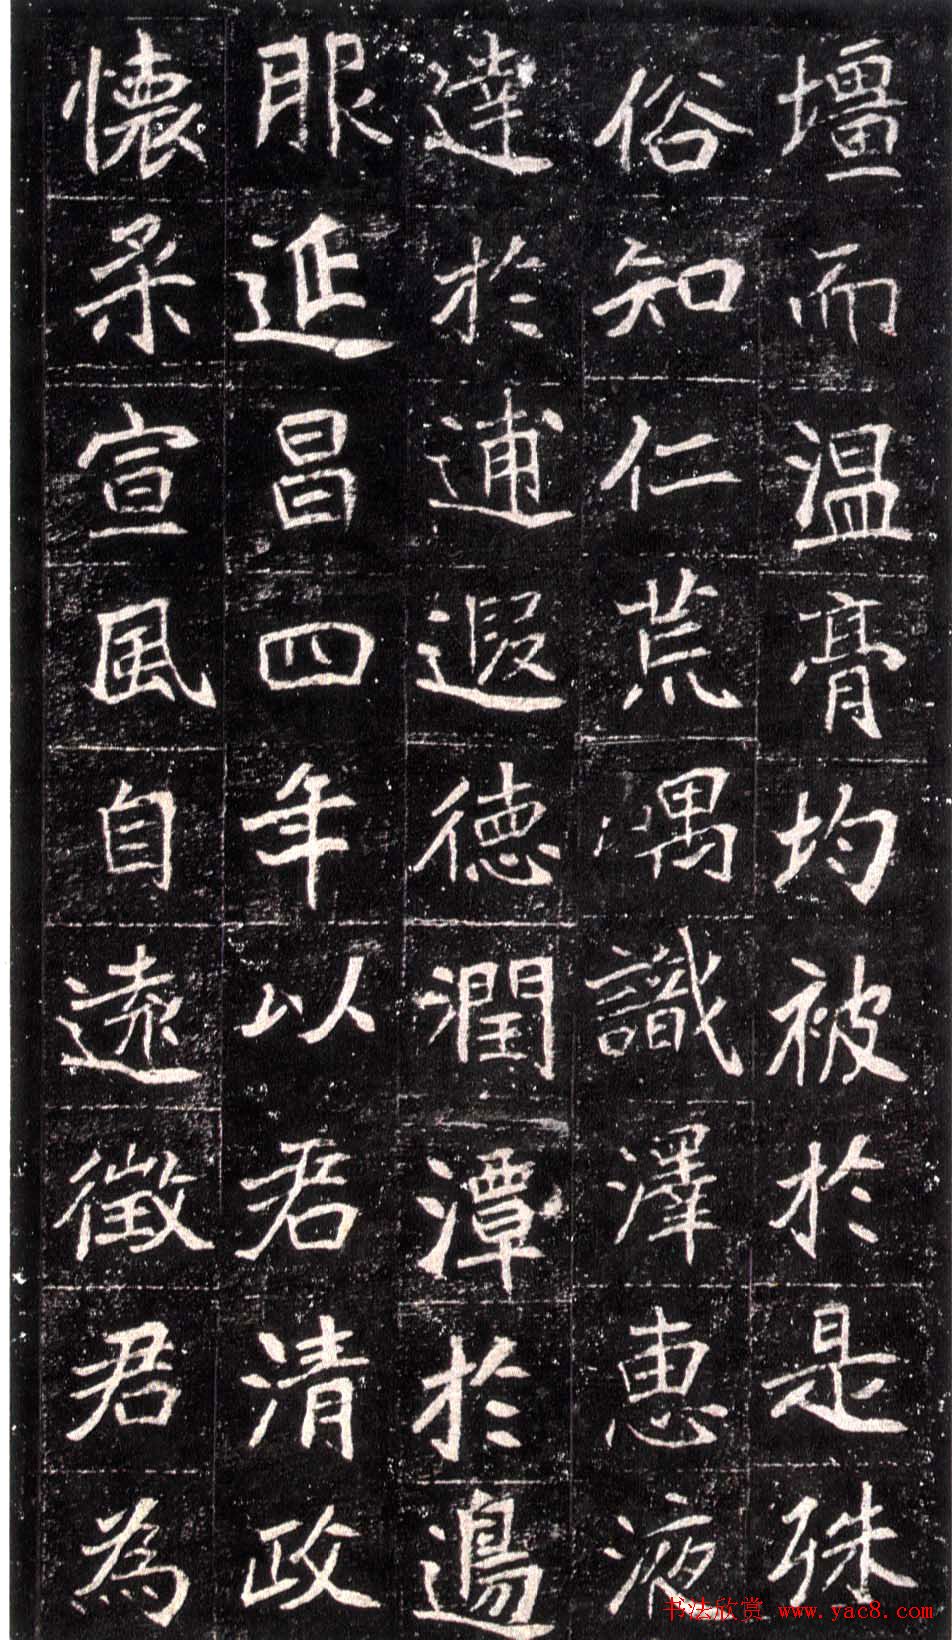 壇而温膏均被於是殊
俗知仁荒嵎識澤惠液
達於逋遐德潤潭於邊
服延昌四年以君清政
懷柔宣風自遠徵君為
书法欣赏 www.yac8.com